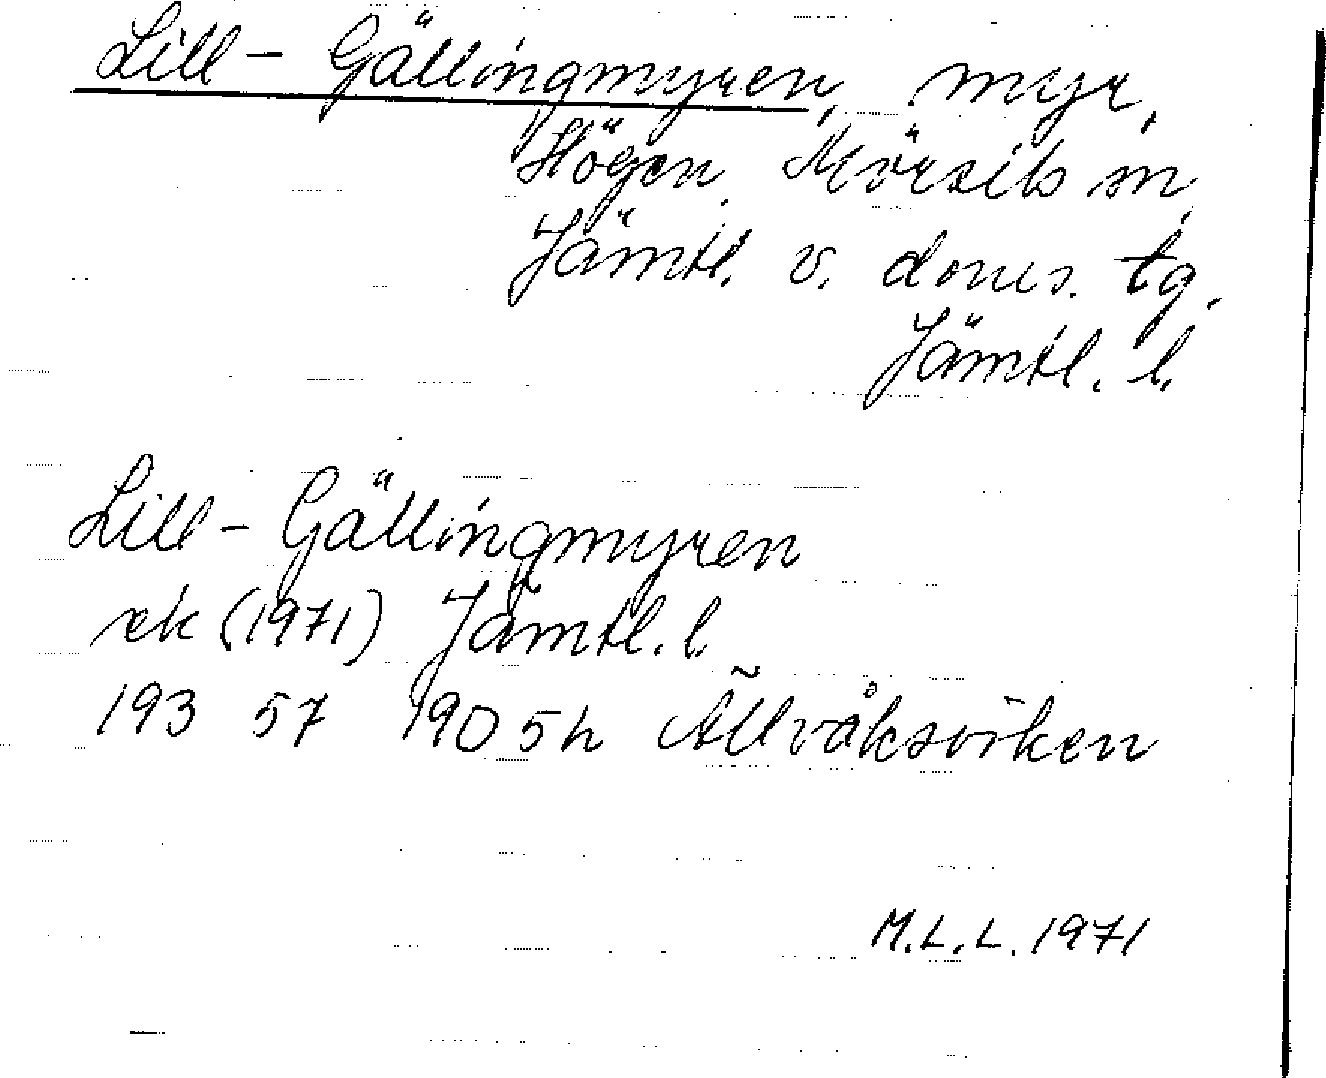 Lill-Gällingmyren, myr,
Högen, Mörsils sn,
Jämtl. v. doms. tg.
Jämtl. l.
Lill-Gällingmyren
ek (1971) Jämtl. l.
193 57 1905h Ällvåksviken
M.L.L. 1971